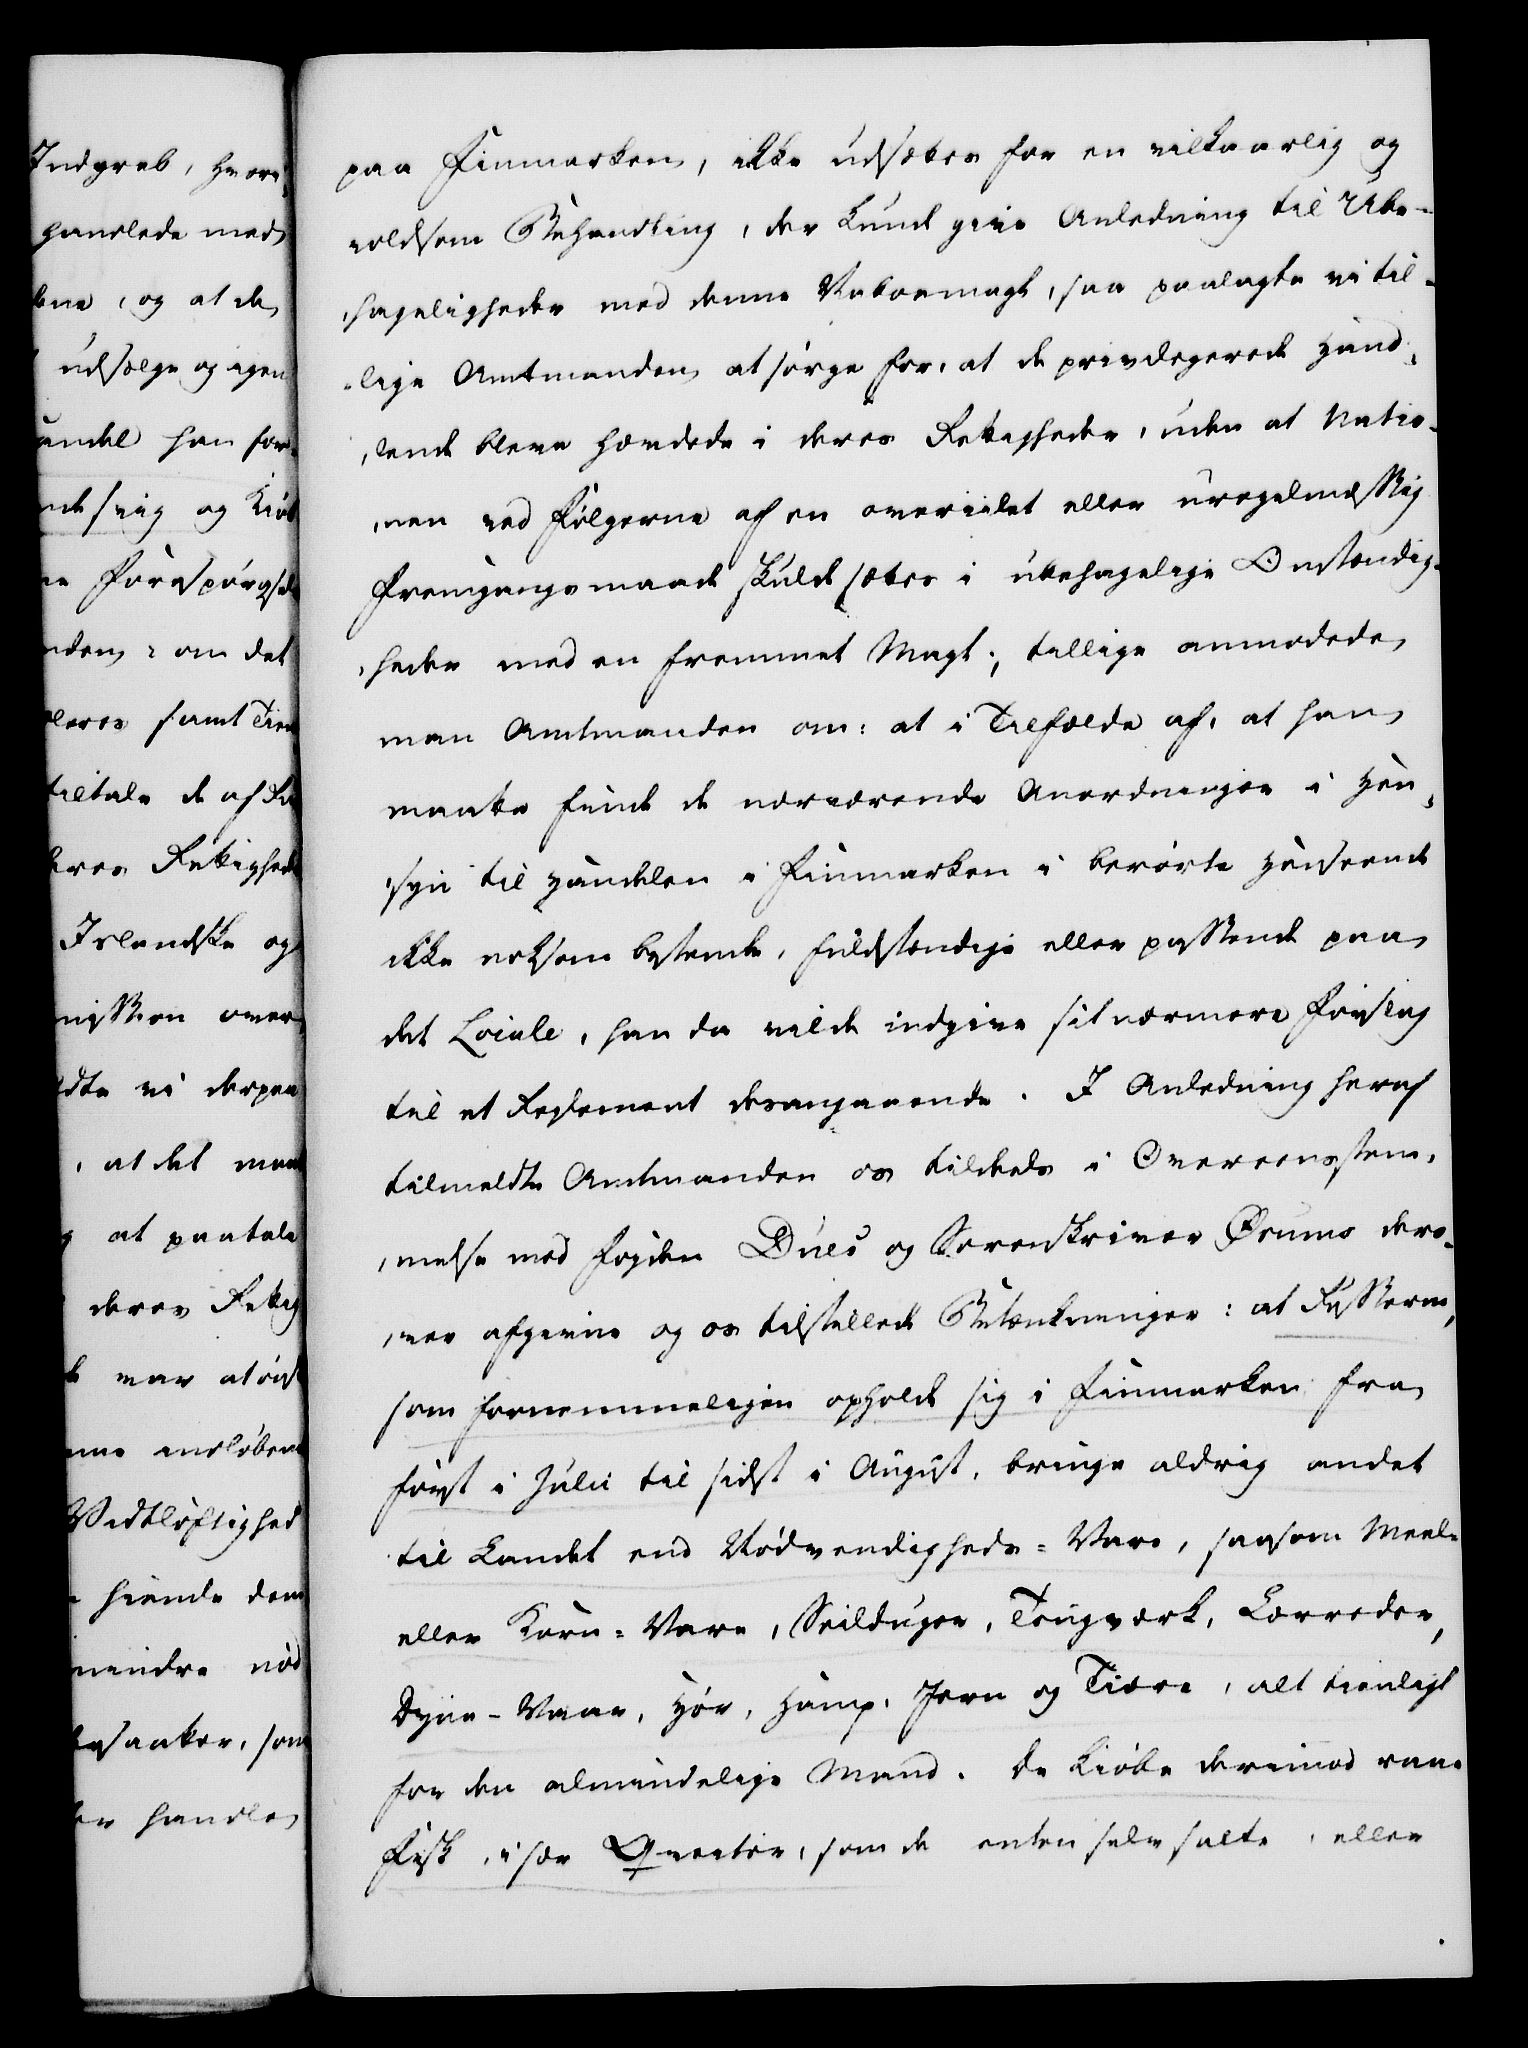 Indgreb, hvori,
handlede med
og at de
udsælge og igen
andel han for¬
og Kiøb
Forespørgsel
om det
samt
tiltale de af
Rettighed
Islandske og
mission over
vi derpaa
, at det maat
at paatale
deres Rettig
var at
indløbene
Vidtløftighed
dem
mindre nød
som
handle
paa Finmarken, ikke udsættes for en vilkaarlig og
voldsom Behandling, der kunde give Anledning til Ube¬
hageligheder med denne Naboemagt, saa paalagte vi til¬
lige Amtmanden at sørge for, at de privilegerede Hand¬
lende bleve hævdede i deres Rettigheder, uden at Natio¬
nen ved Følgerne af en overiilet eller uregelmæssig
Fremgangsmaade skulde sættes i ubehagelige Omstændig¬
heder med en fremmet Magt; tillige anmodede
man Amtmanden om: at i Tilfælde af, at han
maatte finde de nærværende Anordninger i Hen¬
syn til Handelen i Finmarken i berørte Henseende
ikke noksom bestemte, fuldstændige eller passende paa
det Locale, han da vilde indgive sit nærmere Forslag
til et Reglement desangaaende. I Anledning heraf
tilmeldte Amtmanden os tildeels i Overeensstem¬
melse med Fogden Dues og Sorenskriver Ørums der¬
over afgivne og os tilstillede Betænkninger: at Russerne,
som fornemmeligen opholde sig i Finmarken fra
først i Julii til sidst i August, bringe aldrig andet
til Landet end Nødvendigheds=Vare, saasom Meel=
eller Korn=Vare, Seilduger, Tougværk, Lærreder,
Dyne-Vaar, Hør, Hamp, Jern og Tiære, alt tienligt
for den almindelige Mand. De kiøbe derimod raae
Fisk, især Qveiter, som de enten selv salte, eller